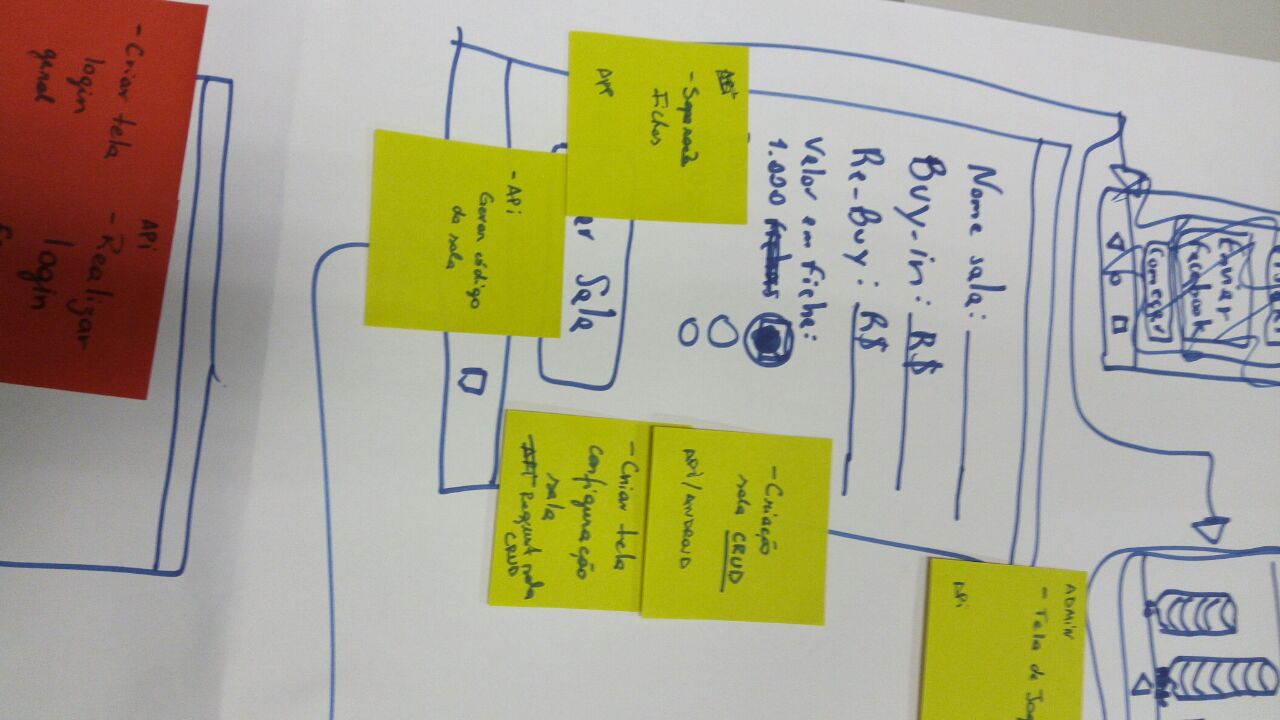 Enviar
Facebook
Começar
ADMIN
- Tela de
API
Nome sala:
Buy-in: R$
Re-Buy: R$
Valor em ficha:
1.000 fichas
- Criação
sala CRUD
API/ANDROID
API
- Separação
Fichas
APP
- Criar tela
configuração
sala
API Request sala
CRUD
ar Sala
- API
Gerar código
da sala
- Criar tela
login
geral
API
- Realizar
login